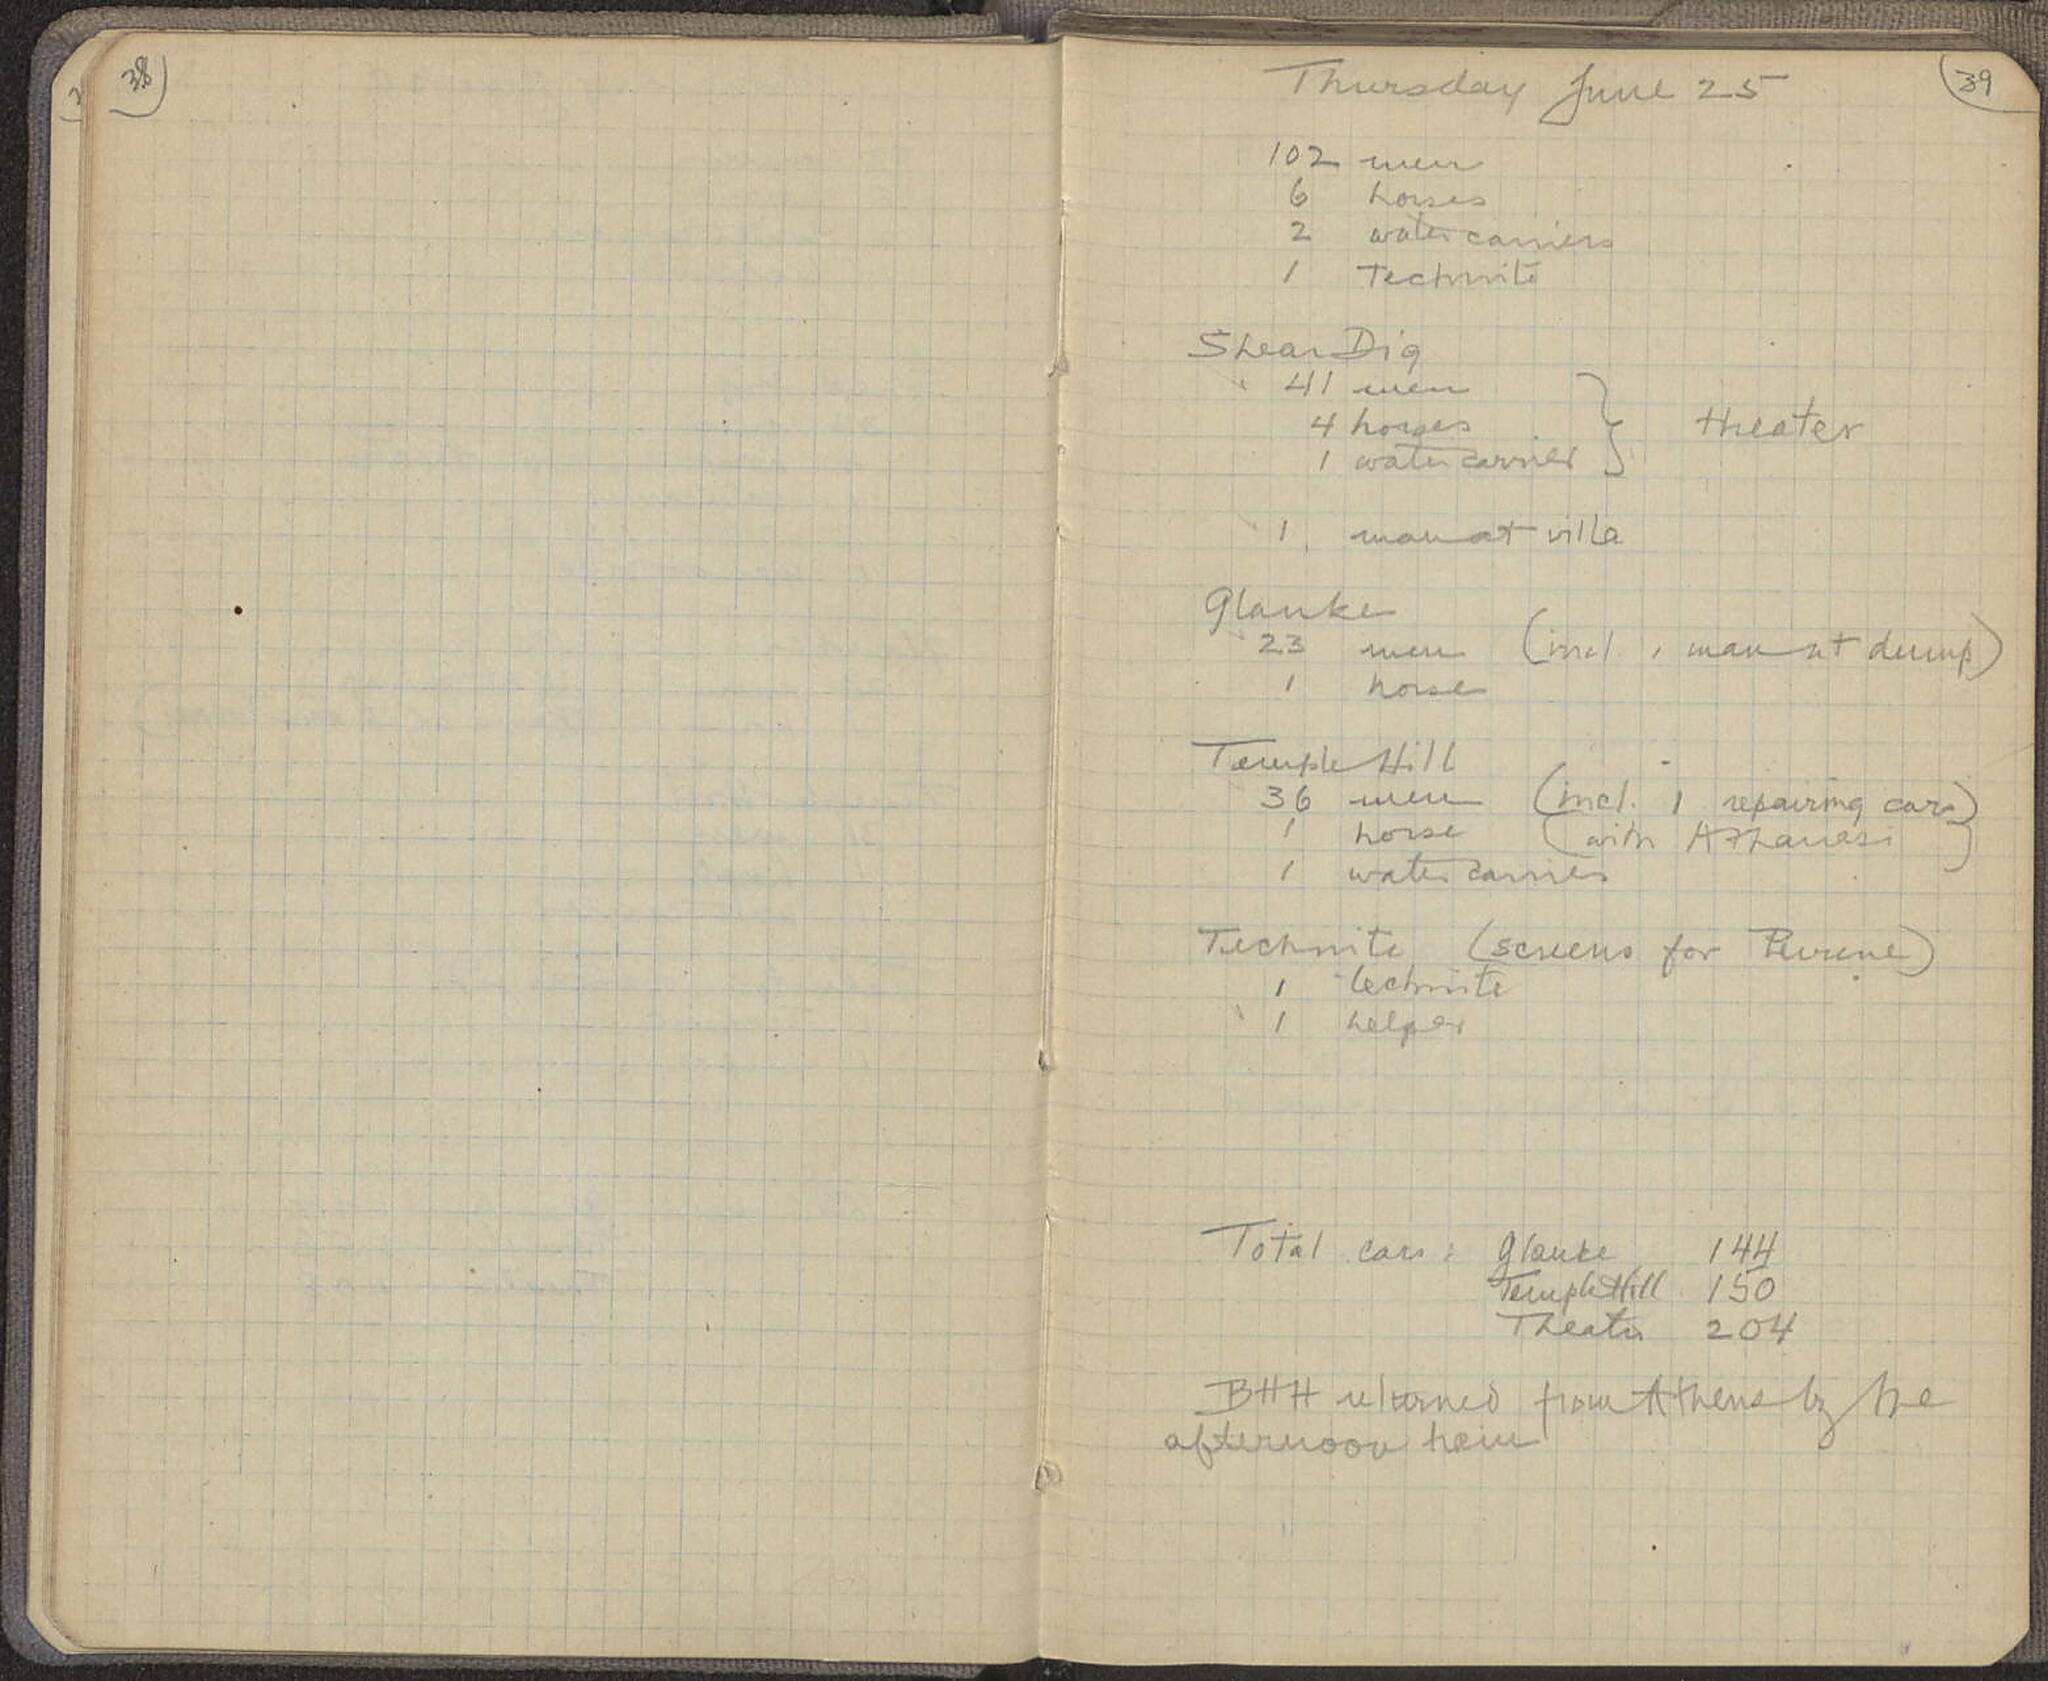 38
39
Thursday June 25
102 men
6 horses
2 water carriers
1 Technite
Shear Dig
41 men
4 horses
1 water carrier
} theater
1 man at villa
Glauke
23 men (incl. 1 man at dump)
1 horse
Temple Hill
36 men (incl. 1 repairing cars)
1 horse (with Athanasi)
1 water carrier
Technite (screens for Peirene)
1 technite
1 helper
Total cars: Glauke 144
Temple Hill 150
Theater 204
BHH returned from Athens by the
afternoon train